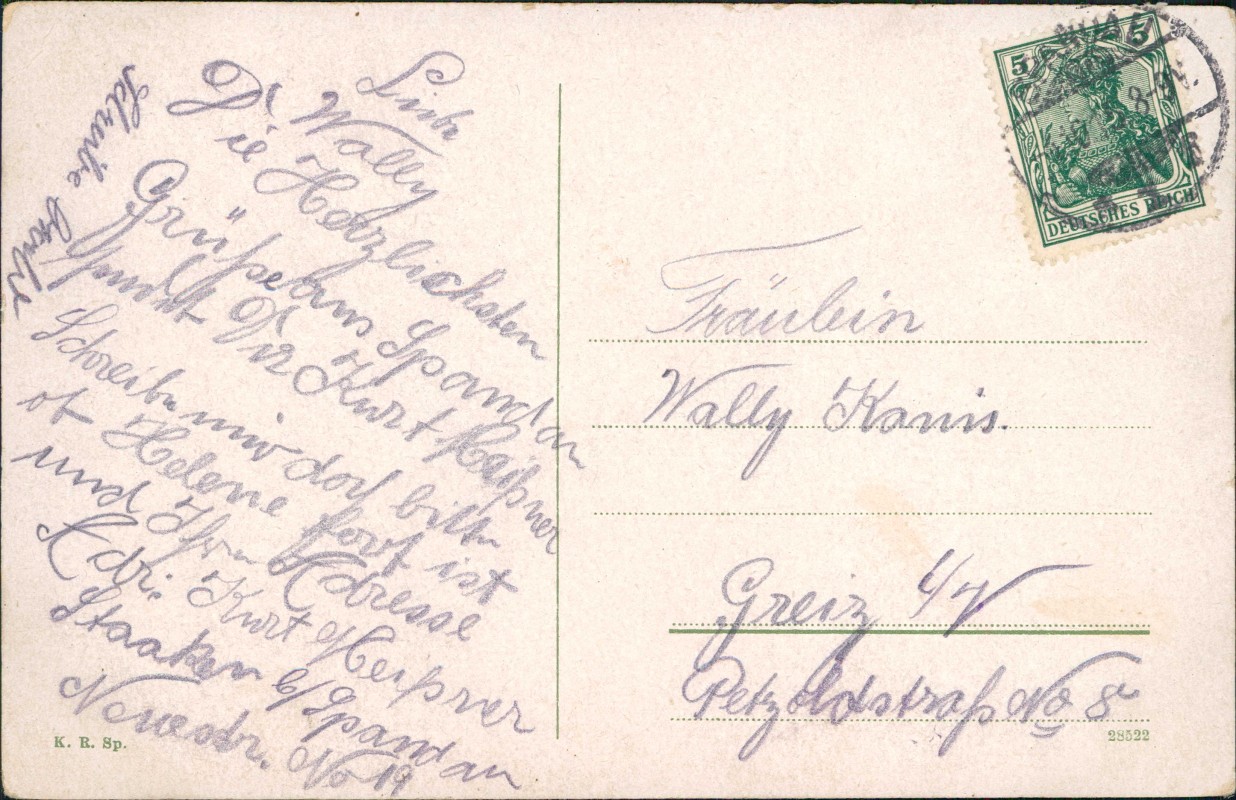 Liebe
Wally
Die Herzlichsten
Grüße aus Spandau
sendet Dir Kurt Meißner
Schreibe mir doch bitte
ob Helene fort ist
und Ihre Adresse
Adr. Kurt Meißner
Staaken b/ Spandau
Neuestr. No 19
Schreibe
5 5
DEUTSCHES REICH
Fräulein
Wally Kanis.
Greiz i/V
Petzoldstraß No 8
K. R. Sp.
28522